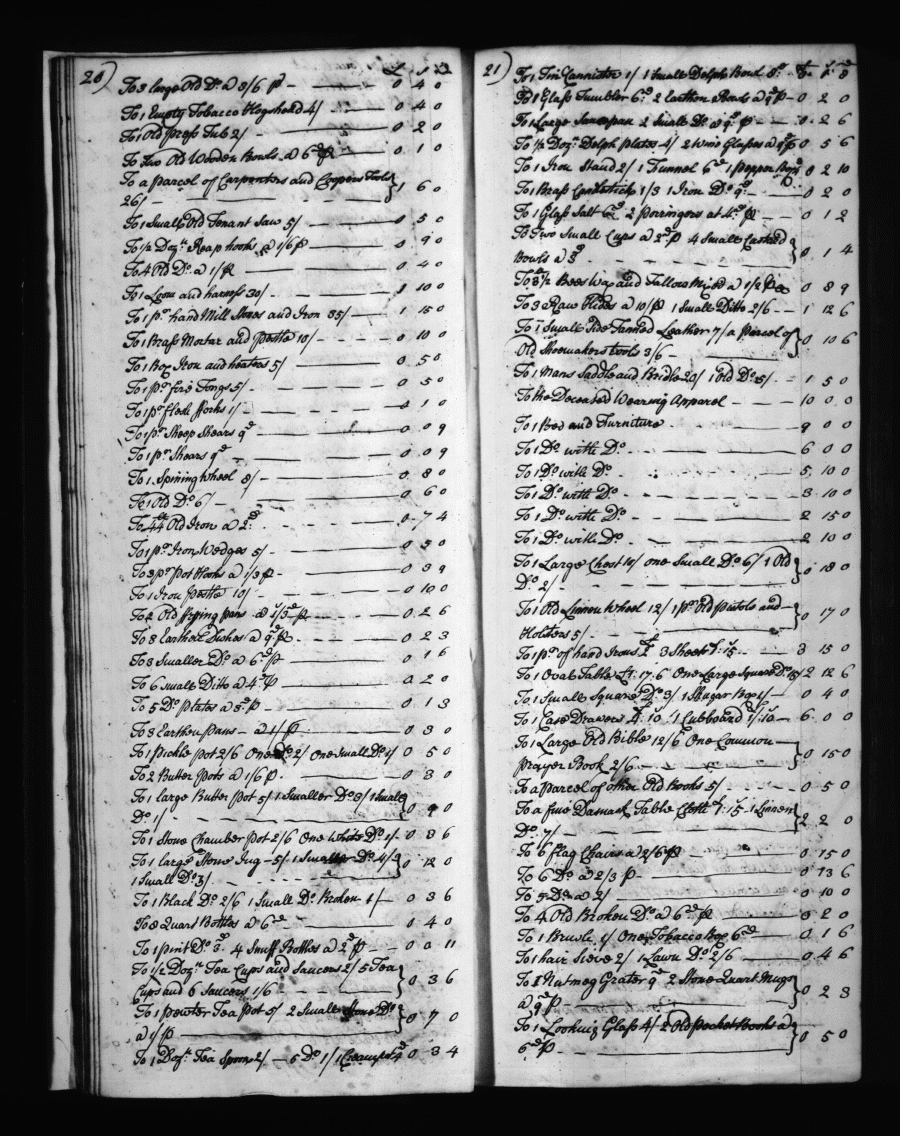 20) £ s D
To 3 large Old Do. a 8/6 p — 0 4 0
To 1 Empty Tobacco Hogshead 4/ — 0 4 0
To 1 Old press Tub 2/ — 0 2 0
To Two Old Wooden Bowls a 6d p — 0 1 0
To a parcel of Carpenters and Coopers Tools } 1 6 0
26/ —
To 1 Small Old Tenant Saw 5/ — 0 5 0
To 1/2 Dozn. Reap hooks a 1/6 p — 0 9 0
To 4 Old Do. a 1/ p — 0 4 0
To 1 Loom and harness 30/ — 1 10 0
To 1 pr. hand Mill Stones and Iron 35/ — 1 15 0
To 1 Brass Mortar and Pestle 10/ — 0 10 0
To 1 Box Iron and heaters 5/ — 0 5 0
To 1 pr. fire Tongs 5/ — 0 5 0
To 1 pr. flesh forks 1/ — 0 1 0
To 1 pr. Sheep Shears 9d — 0 0 9
To 1 pr. Shears 9d — 0 0 9
To 1 Spining Wheel 8/ — 0 8 0
To 1 Old Do. 6/ — 0 6 0
To 44 Old Iron a 2d — 0 7 4
To 1 pr. Iron Wedges 5/ — 0 5 0
To 3 pr. Pot Hooks a 1/3 p — 0 3 9
To 1 Iron Pestle 10/ — 0 10 0
To 2 Old Frying pans a 1/3 p — 0 2 6
To 3 Earthen Dishes a 9d p — 0 2 3
To 3 Smaller Do. a 6d p — 0 1 6
To 6 small Ditto a 4d p — 0 2 0
To 5 Do. plates a 3d p — 0 1 3
To 3 Earthen pans — a 1/ p — 0 3 0
To 1 Pickle pot 2/6 One Do 2/ One Small Do. 1/ 0 5 0
To 2 Butter Pots a 1/6 p. — 0 3 0
To 1 large Butter pot 5/ 1 Smaller Do 3/ 1 Small } 0 9 0
Do 1/ —
To 1 Stone Chamber Pot 2/6 One White Do. 1/ - 0 3 6
To 1 large Stone Jug — 5/ 1 Smaller Do. 4/ } 0 12 0
1 Small Do 3/ —
To 1 Black Do. 2/6 1 Small Do. Broken 1/ — 0 3 6
To 8 Quart Bottles a 6d — 0 4 0
To 1 pint Do. 3d. 4 Snuff Bottles a 2d p — 0 0 11
To 1/2 Dozn. Tea Cups and Saucers 2/ 5 Tea } 0 3 6
Cups and 6 Saucers 1/6 —
To 1 pewter Tea Pot 5/ 2 Small Stone Do. } 0 7 0
a 1/ p —
To 1 Dozn. Tea Spoons 2/ — 6 Do 1/ 1 4d 0 3 4
21) £ s D
To 1 Tin Cannister 1/ 1 Small Delph Bowl
To 1 Glass Tumbler 6d. 2 Earthen Bowls a 9d p — 0 2 0
To 1 Large Saucepan 2 Small Do a 9d. p — 0 2 6
To 1/2 Dozn. Delph Plates 4/ 2 Wine Glasses a 9d p 0 5 6
To 1 Iron Stand 2/ 1 Funnel 6d 1 Pepper Box 0 2 10
To 1 Brass Candlestick 1/3 1 Iron Do 9d. — 0 2 0
To 1 Glass Salt 6d 2 Porringers at 4d. p — 0 1 2
To Two Small Cups a 2d p 4 Small } 0 1 4
Bowls a 3d
To 3 1/2 Bees Wax and Tallow Mixd a 1/2 p 0 8 9
To 3 Raw Hides a 10/ p 1 Small Ditto 2/6 — 1 12 6
To 1 Small Side Tanned Leather 7/ a parcel of } 0 10 6
Old Shoemakers tools 3/6 —
To 1 Mans Saddle and Bridle 20/ 1 Old Do 5/ — 1 5 0
To the Deceased Wearing Apparel — 10 0 0
To 1 Bed and Furniture — 9 0 0
To 1 Do. with Do. — 6 0 0
To 1 Do. with Do. — 5 10 0
To 1 Do. with Do. — 3 10 0
To 1 Do. with Do. — 2 15 0
To 1 Do. with Do. — 2 10 0
To 1 Large Chest 10/ one Small Do 6/ 1 Old } 0 18 0
Do 2/ —
To 1 Old Linnen Wheel 12/ 1 pr. Old Pistols and } 0 17 0
Holsters 5/ —
To 1 pr. of hand Irons 3 Sheets 1:15 — 3 15 0
To 1 Oval Table £1.17.6 One Large Square Do. 15/ 2 12 6
To 1 Small Square Do 3/ 1 Shugar Box 1/ — 0 4 0
To 1 Case Drawers £4:10 1 Cubboard 1/:10 — 6 0 0
To 1 Large Old Bible 12/6 One Common } 0 15 0
prayer Book 2/6 —
To a parcel of other Old Books 5/ — 0 5 0
To a fine Damask Table Cloth 1:15 - 1 Linnen } 2 2 0
Do. 7/ —
To 6 flag Chairs a 2/6 p — 0 15 0
To 6 Do a 2/3 p — 0 13 6
To 5 Do a 2/ — 0 10 0
To 4 Old Broken Do. a 6d. p — 0 2 0
To 1 Brush 1/ One Tobacco Box 6d — 0 1 6
To 1 hair Sieve 2/ 1 Lawn Do. 2/6 — 0 4 6
To 1 Nutmeg Grater 9d 2 Stone Quart Mugs } 0 2 3
a 9d p —
To 1 Looking Glass 4/ 2 Old Pocket Books a } 0 5 0
6d p —